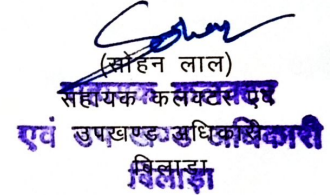 (सोहन लाल)
सहायक कलक्टर एवं
एवं उपखण्ड अधिकारी
बिलाड़ा